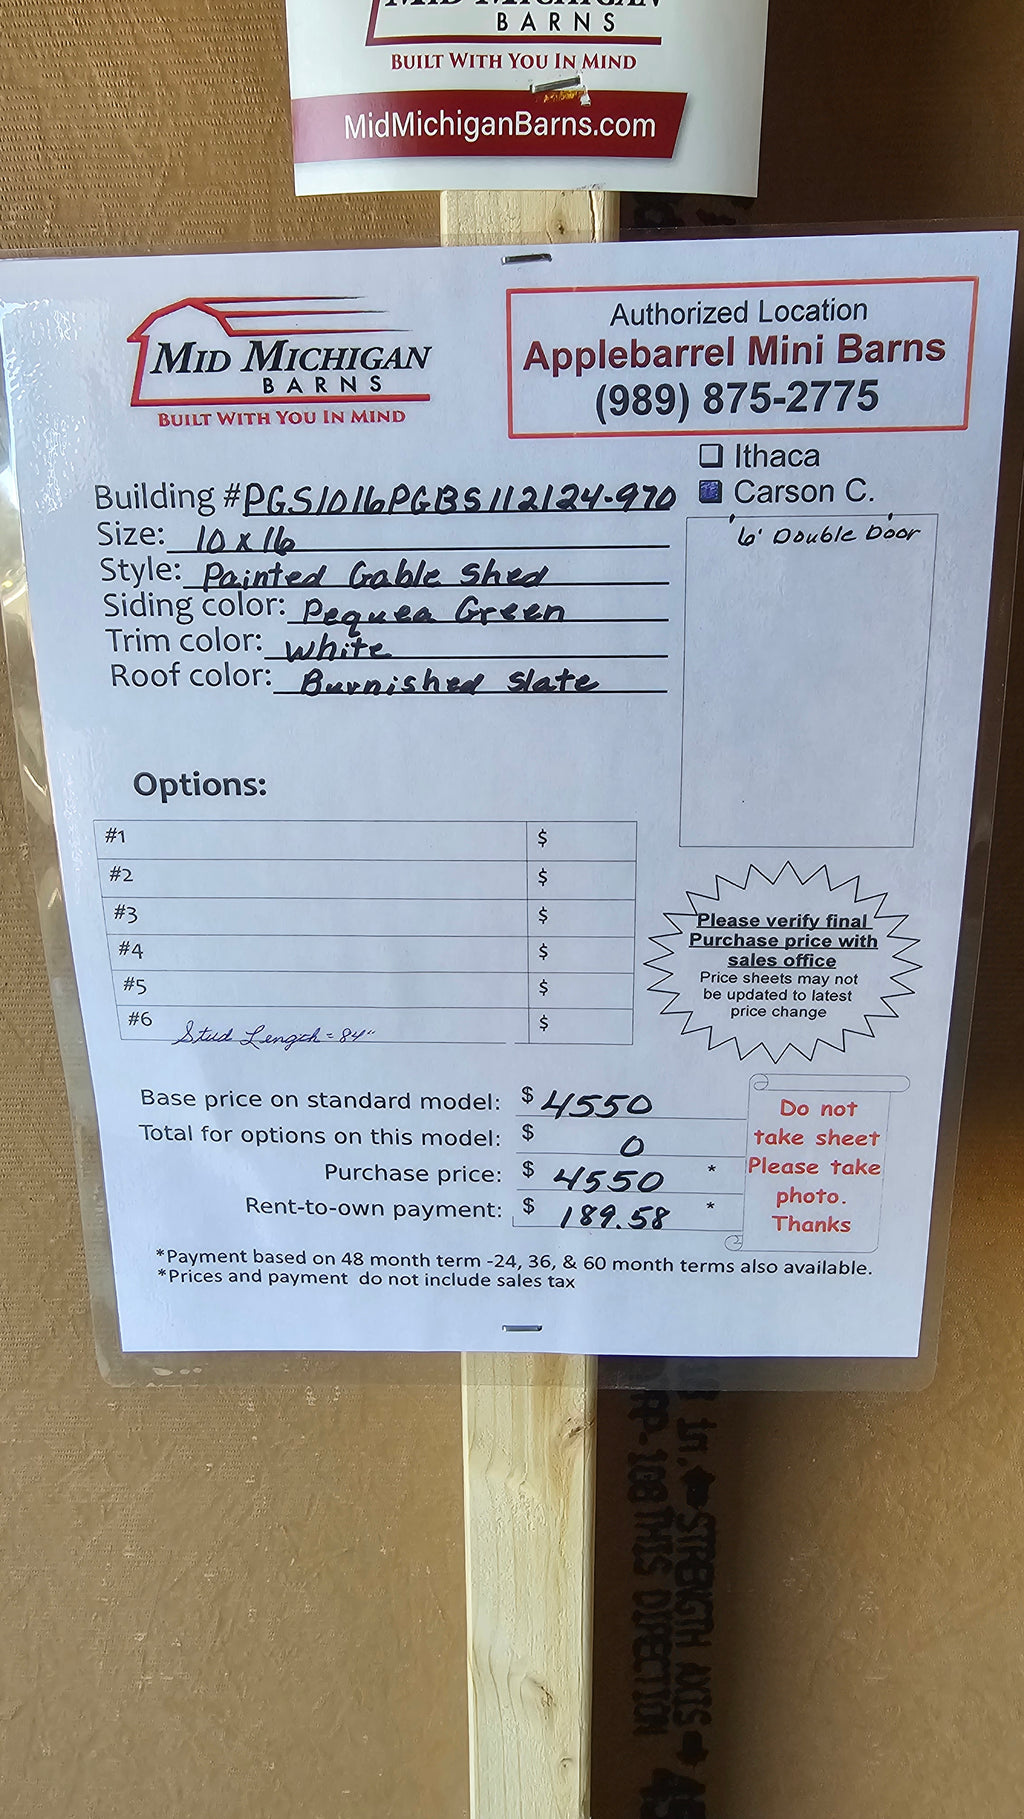 MID MICHIGAN
BARNS
BUILT WITH YOU IN MIND
MidMichiganBarns.com
MID MICHIGAN
BARNS
BUILT WITH YOU IN MIND
Authorized Location
Applebarrel Mini Barns
(989) 875-2775
Ithaca
Carson C.
Building # PGS1016PGBS112124-970
Size: 10 x 16
Style: Painted Gable Shed
Siding color: Pequea Green
Trim color: White
Roof color: Burnished Slate
6' Double Door
Options:
#1 $
#2 $
#3 $
#4 $
#5 $
#6 Stud Length = 84" $
Please verify final
Purchase price with
sales office
Price sheets may not
be updated to latest
price change
Base price on standard model: $ 4550
Total for options on this model: $ 0
Purchase price: $ 4550 *
Rent-to-own payment: $ 189.58 *
Do not
take sheet
Please take
photo.
Thanks
*Payment based on 48 month term -24, 36, & 60 month terms also available.
*Prices and payment do not include sales tax
STRENGTH AXIS
THIS DIRECTION